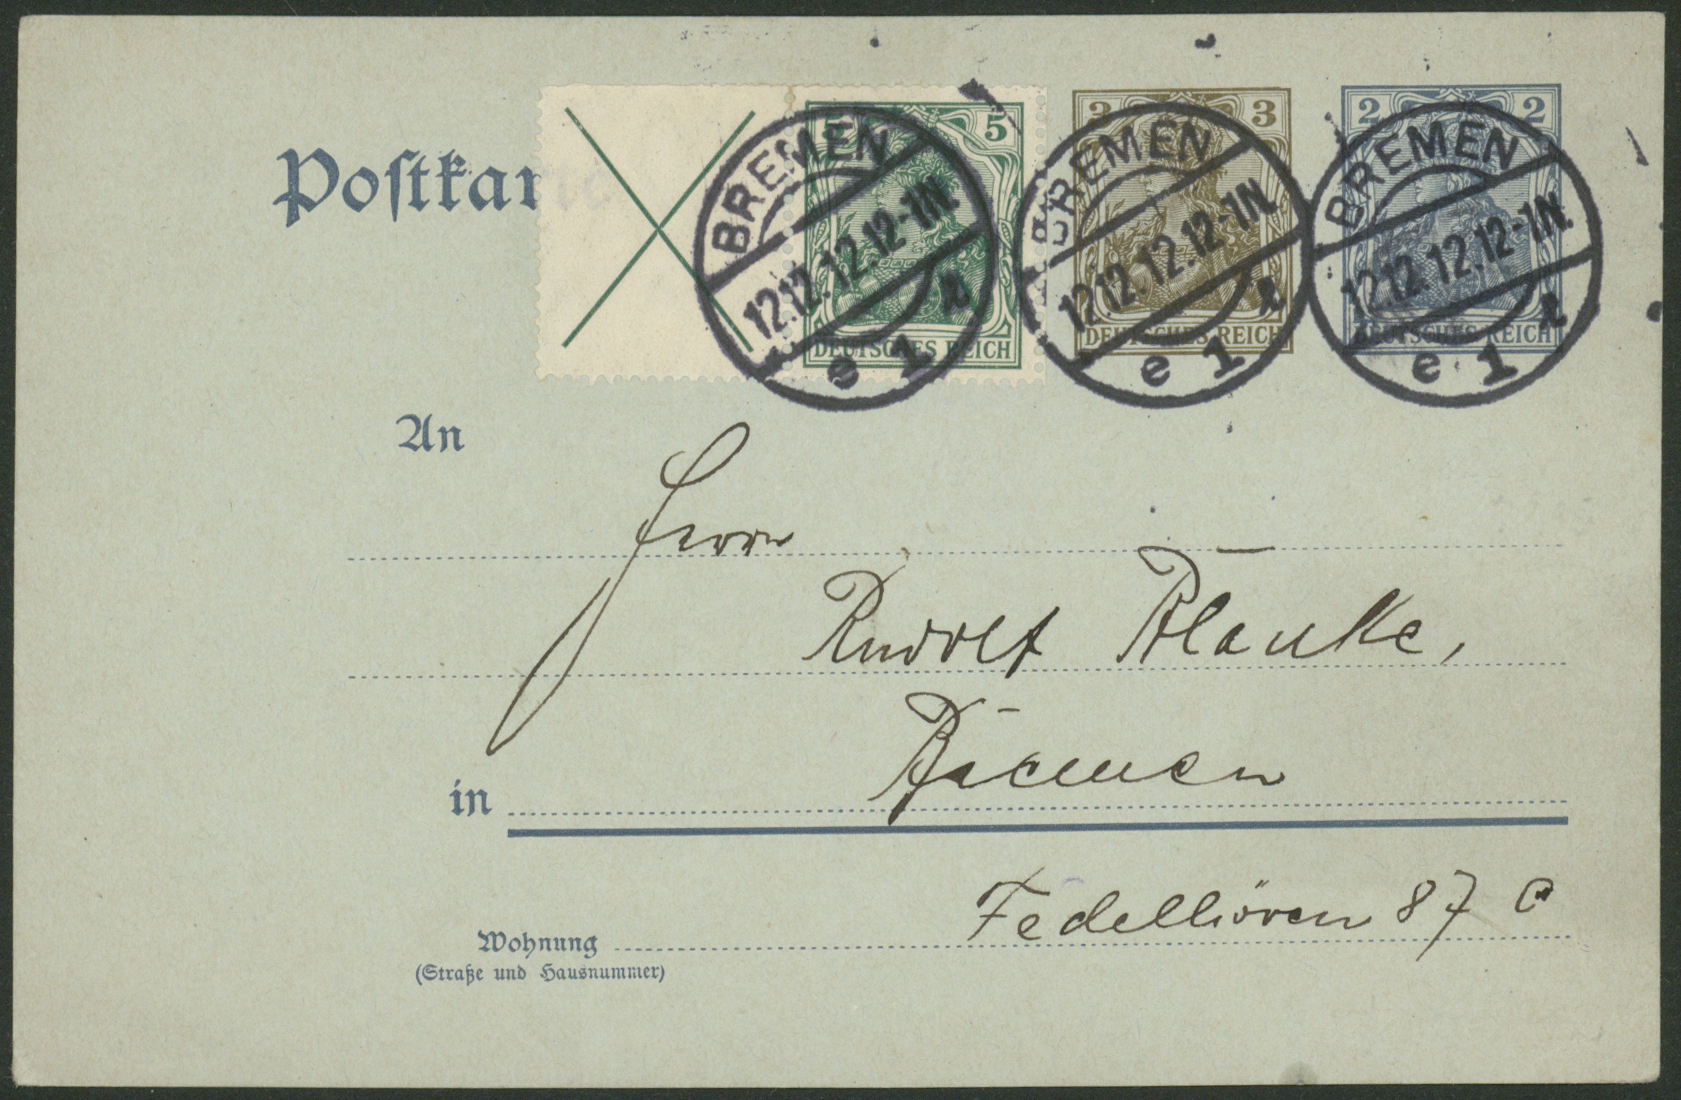 Postkarte
5 5
DEUTSCHES REICH
3 3
DEUTSCHES REICH
2 2
DEUTSCHES REICH
BREMEN
12.12.12.12-1N.
e 1
BREMEN
12.12.12.12-1N.
e 1
BREMEN
12.12.12.12-1N.
e 1
An
Herrn
Rudolf Blanke,
in Bremen
Wohnung Fedelhören 87 C
(Straße und Hausnummer)